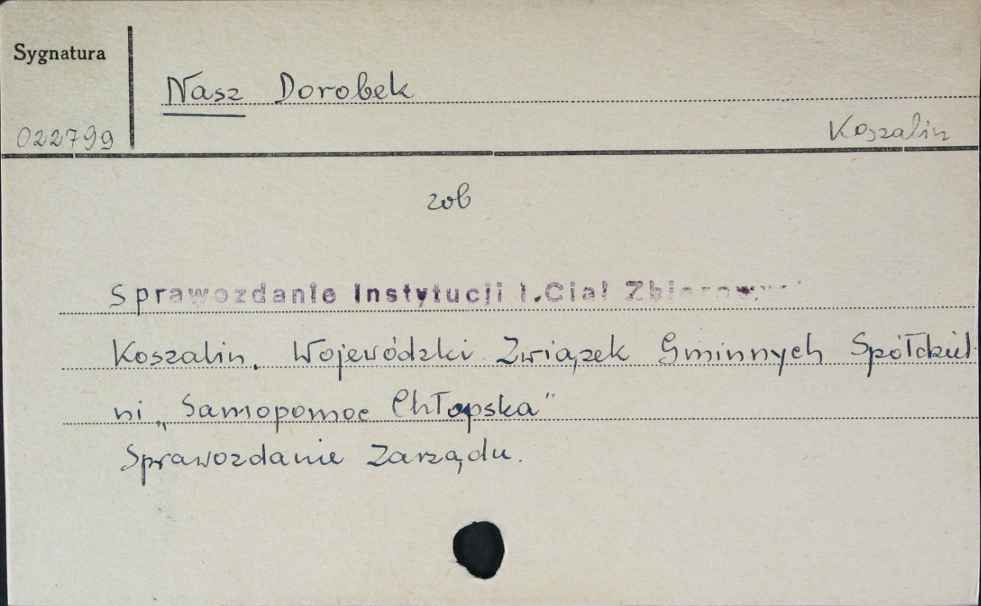 Sygnatura
Nasz Dorobek
022799
Koszalin
zob
Sprawozdanie Instytucji i Ciał
Koszalin. Wojewódzki Związek Gminnych Spółdziel-
ni „Samopomoc Chłopska"
Sprawozdanie Zarządu.